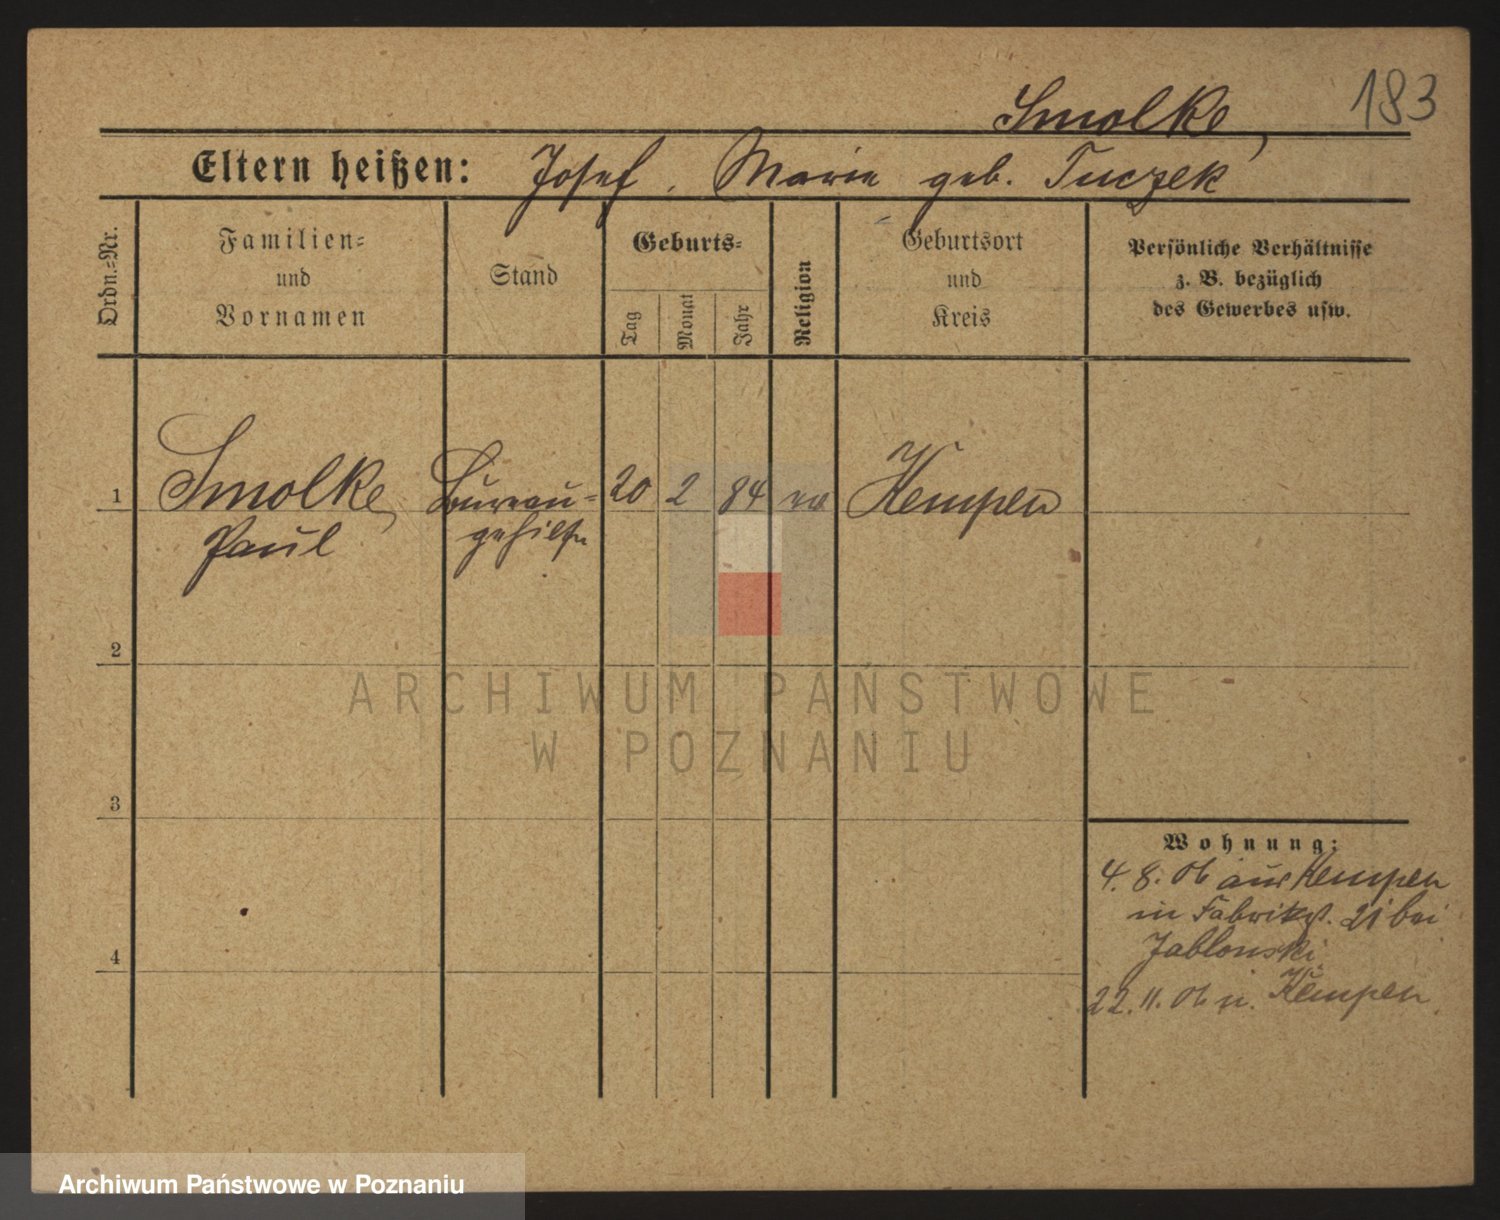 Smolke,
183
Eltern heißen: Josef, Marie geb. Tuczek
Ordn.-Nr.
Familien-
und
Vornamen
Stand
Geburts-
Tag
Monat
Jahr
Religion
Geburtsort
und
Kreis
Persönliche Verhältnisse
z. B. bezüglich
des Gewerbes usw.
1 Smolke, Bureau- 20 2 84 Kempen
Paul gehilfe
2
3
4
Wohnung:
4. 8. 06 aus Kempen
in Fabrikst. 21 bei
Jablonski
22. 11. 06 n. Kempen
ARCHIWUM PAŃSTWOWE
W POZNANIU
Archiwum Państwowe w Poznaniu